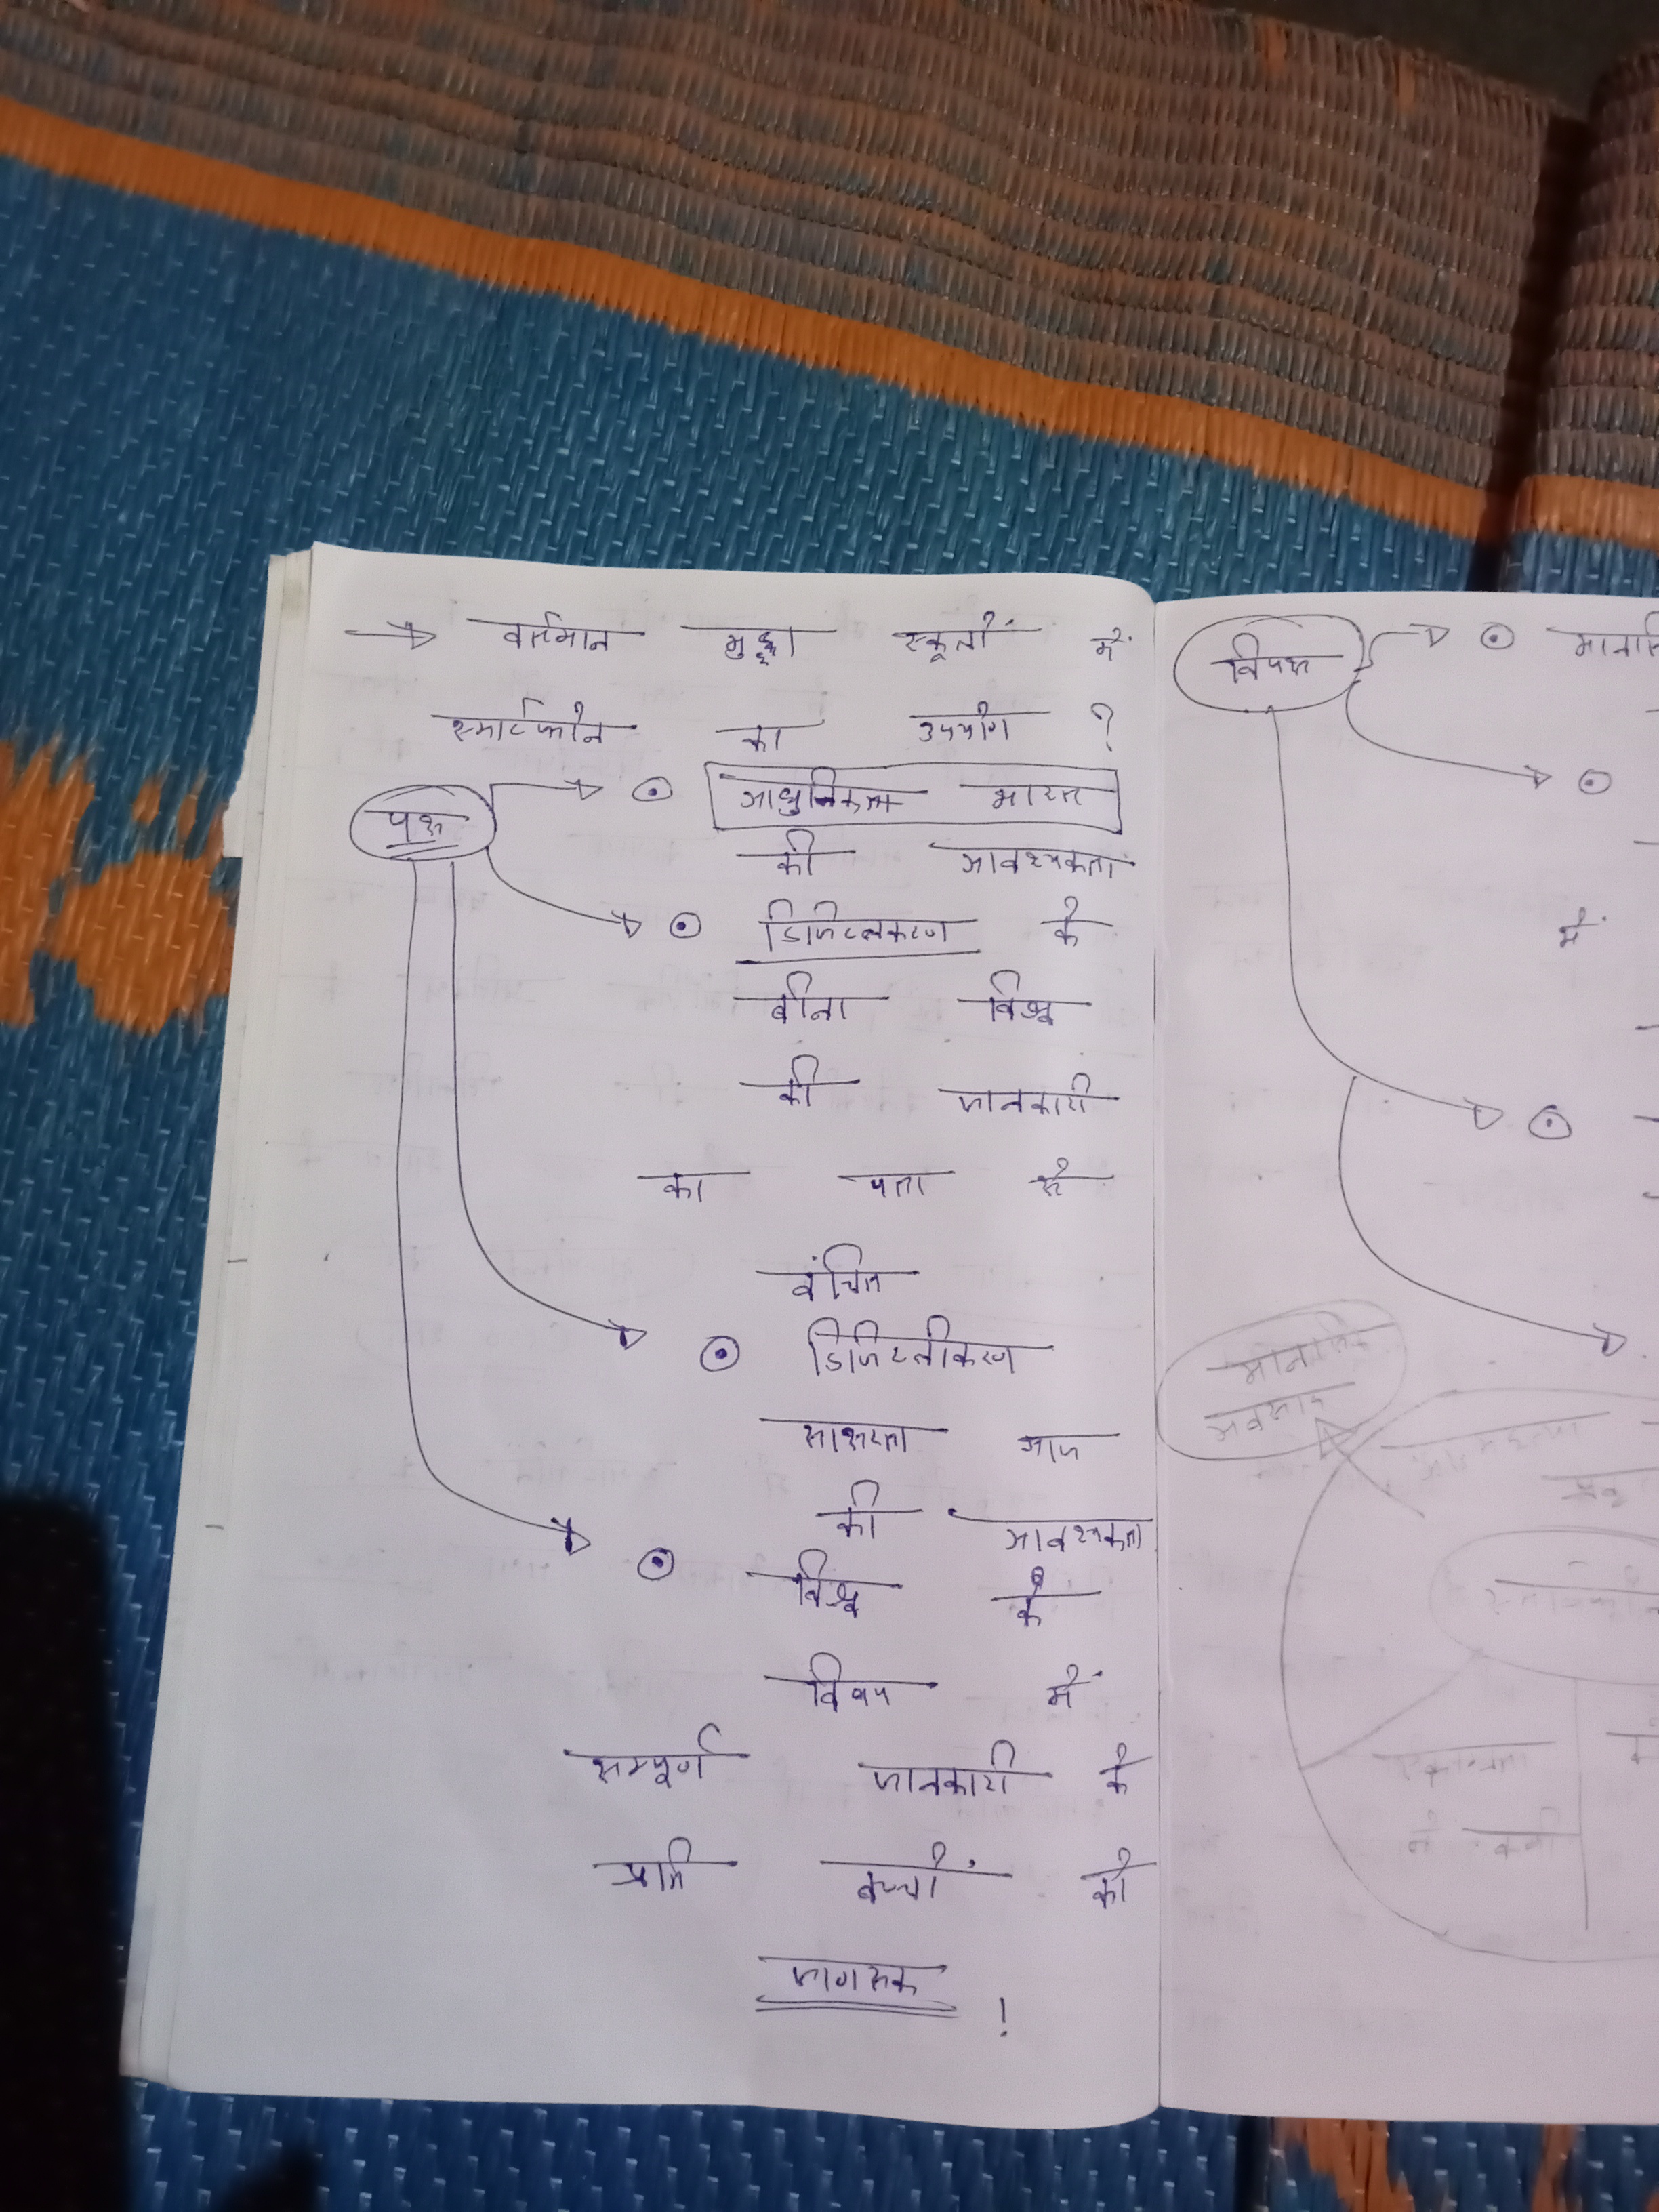 → वर्तमान मुद्दा स्कूलों में
स्मार्टफोन का उपयोग ?
पक्ष
⊙ आधुनिकता भारत
की आवश्यकता
⊙ डिजिटलकरण के
बीना विश्व
की जानकारी
का पता से
वंचित
⊙ डिजिटलीकरण
साक्षरता आज
की आवश्यकता
⊙ विश्व के
विषय में
सम्पूर्ण जानकारी के
प्रति बच्चों को
जागरूक !
विपक्ष
⊙
⊙
में
⊙
अवसाद